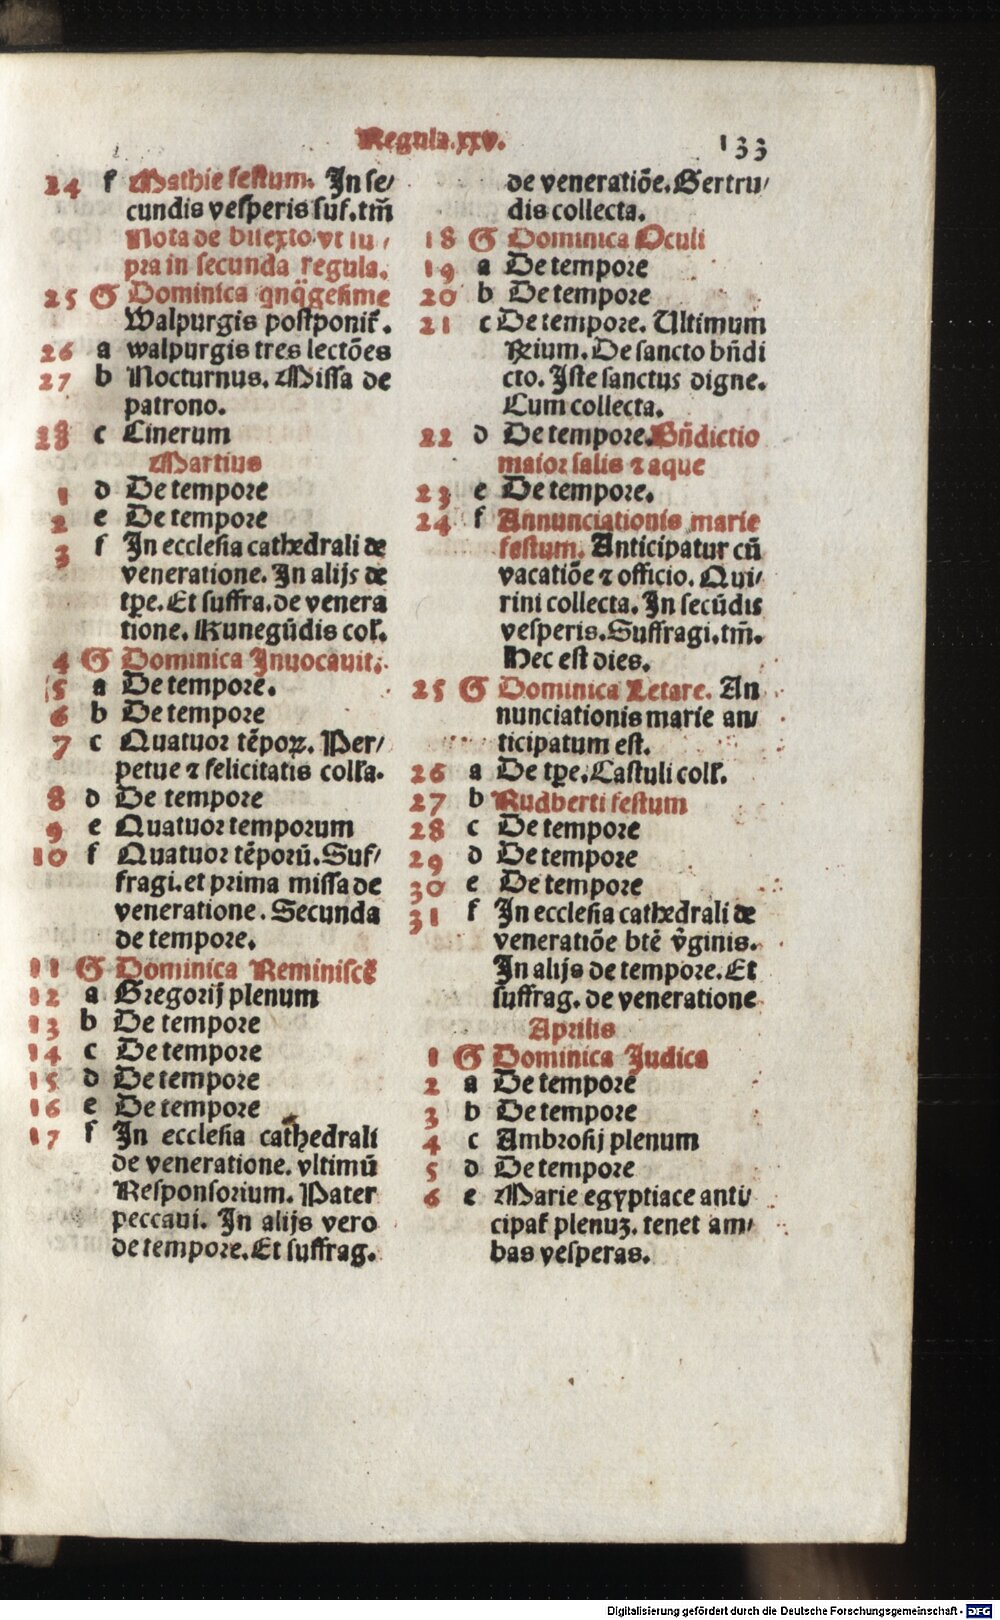 Regula.xxv. 133
24 f Mathie festum. In se/
cundis vesperis suf. tm̄
Nota de bisexto vt su/
pra in secunda regula.
25 G Dominica qnq̈gesime
Walpurgis postponit᷑.
26 a walpurgis tres lectōes
27 b Nocturnus. Missa de
patrono.
28 c Cinerum
Martius
1 d De tempore
2 e De tempore
3 f In ecclesia cathedrali de
veneratione. In alijs de
tꝑe. Et suffra. de venera
tione. Kunegūdis col̄l.
4 G Dominica Inuocauit.
5 a De tempore.
6 b De tempore
7 c Quatuor tēpoꝝ. Per/
petue ⁊ felicitatis col̄la.
8 d De tempore
9 e Quatuor temporum
10 f Quatuor tēporū. Suf/
fragi. et prima missa de
veneratione. Secunda
de tempore.
11 G Dominica Reminiscē
12 a Gregorij plenum
13 b De tempore
14 c De tempore
15 d De tempore
16 e De tempore
17 f In ecclesia cathedrali
de veneratione. vltimū
Responsorium. Pater
peccaui. In alijs vero
de tempore. Et suffrag.
de veneratiōe. Gertru/
dis collecta.
18 G Dominica Oculi
19 a De tempore
20 b De tempore
21 c De tempore. Ultimum
℞rium. De sancto bn̄di
cto. Iste sanctus digne.
Cum collecta.
22 d De tempore. Bn̄dictio
maior salis ⁊ aque
23 e De tempore.
24 f Annunciationis marie
festum. Anticipatur cū
vacatiōe ⁊ officio. Qui/
rini collecta. In secūdis
vesperis. Suffragi. tm̄.
Hec est dies.
25 G Dominica Letare. An
nunciationis marie an/
ticipatum est.
26 a De tꝑe. Castuli col̄l.
27 b Rudberti festum
28 c De tempore
29 d De tempore
30 e De tempore
31 f In ecclesia cathedrali de
veneratiōe btē v̄ginis.
In alijs de tempore. Et
suffrag. de veneratione
Aprilis
1 G Dominica Judica
2 a De tempore
3 b De tempore
4 c Ambrosij plenum
5 d De tempore
6 e Marie egyptiace anti/
cipat᷑ plenuꝫ. tenet am/
bas vesperas.
Digitalisierung gefördert durch die Deutsche Forschungsgemeinschaft - DFG